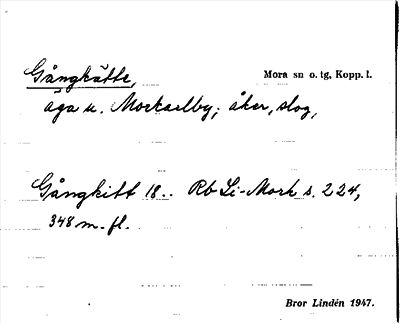 Gångkätte,
Mora sn o. tg, Kopp. l.
äga u. Morkarlby; åker, slog,
Gångkitt 18.. Rb Li-Mork s. 224,
348 m. fl.
Bror Lindén 1947.